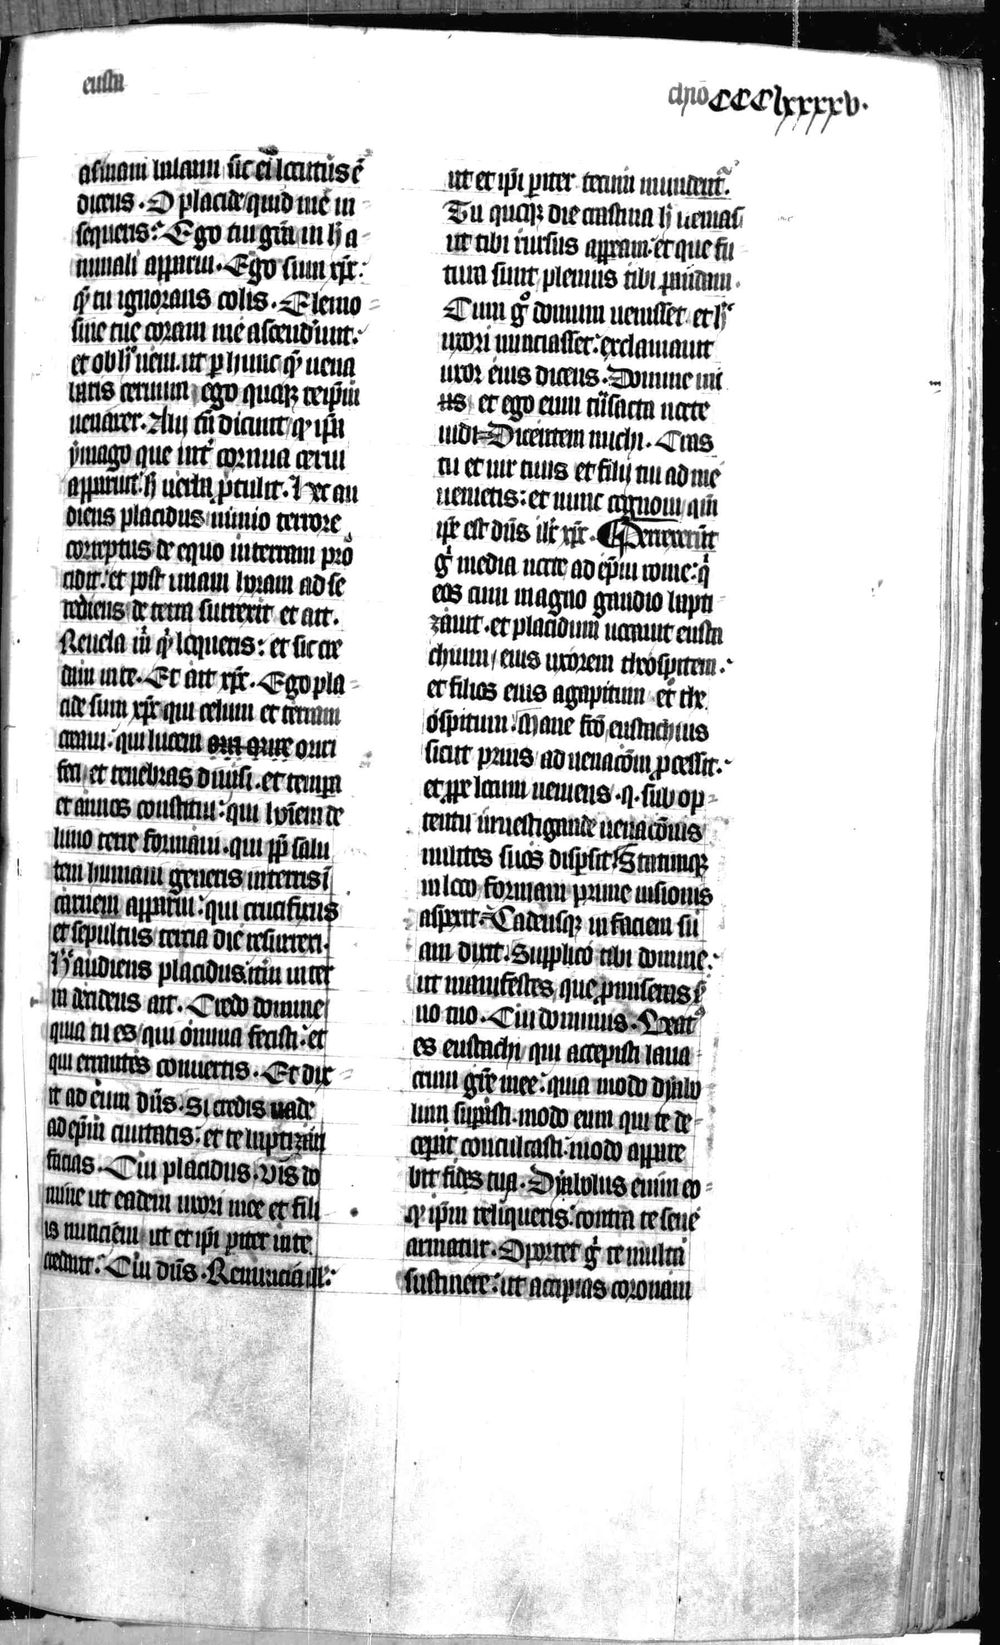 eusta
chio CCClxxxxv.
asinam balaam sic ei locutus ē
dicens. O placide quid me in
sequeris: Ego tui grā in h̄ a
nimali apparui. Ego sum xp̄c:
q̄ tu ignorans colis. Elemo
sine tue coram me ascenderunt:
et ob h̄ veni. ut per hunc q̄ vena
baris cervum / ego quoque teip̄m
venarer. Alij tn̄ dicunt / q̄ ip̄a
ymago que inter cornua cervi
apparuit: h̄ verba p̄tulit. Hec au
diens placidus nimio terrore
correptus de equo in terram pro
cidit: et post unam horam ad se
rediens de terra surrexit et ait.
Revela m̄ q̄ loqueris: et sic cre
dam in te. Et ait xp̄c. Ego pla
cide sum xp̄c qui celum et terram
creavi: qui lucem oriri
feci / et tenebras divisi. et tempora
et annos constitui: qui hoīem de
limo terre formavi. qui pp̄ salu
tem humani generis in terris ī
carnem apparui: qui crucifixus
et sepultus tercia die resurrexi.
H̄ audiens placidus: itm̄ in ter
ra decidens ait. Credo domine
quia tu es / qui omnia fecisti: et
qui errantes convertis. Et dix
it ad eum dn̄s. Si credis vade
ad ep̄m civitatis: et te baptizari
facias. Cui placidus. Vis do
mine ut eadem uxori mee et fili
is nunciem ut et ip̄i pariter in te
credant: Cui dn̄s. Renuncia ill̄:
ut et ip̄i pariter tecum mundent̄.
Tu quoque die crastina h̄ venias
ut tibi rursus appeam: et que fu
tura sunt plenius tibi pandam.
Cum g̊ domum venisset et h̄
uxori nunciasset: exclamavit
uxor eius dicens. Domine mi
us et ego eum tn̄sacta nocte
vidi Dicentem michi. Cras
tu et vir tuus et filij tui ad me
venietis: et nunc cognovi / qm̄
ip̄e est dn̄s ih̄c xp̄c. Perrexerūt
g̊ media nocte ad ep̄m rome: q̄
eos cum magno gaudio bapti
zavit. et placidum vocavit eusta
chium / eius uxorem theospitem:
et filios eius agapitum et the
ospitum. Mane fcō eustachius
sicut prius ad venacōm p̄cessit.
et prope locum veniens. q. sub op
tentu investigande venacōnis
milites suos dispsit. Statimque
in loco formam prime visionis
aspexit. Cadensque in faciem su
am dixit. Supplico tibi domine:
ut manifestes que promiseras s̄
vo tuo. Cui dominus. Beatus
es eustachi qui accepisti lava
crum grē mee: quia modo dyabo
lum superasti. modo eum qui te de
ceperat conculcasti. modo appare
bit fides tua. Dyabolus enim eo
q̄ ip̄m reliqueris: contra te seve
armatur. Oportet g̊ te multa
sustinere: ut accipias coronam